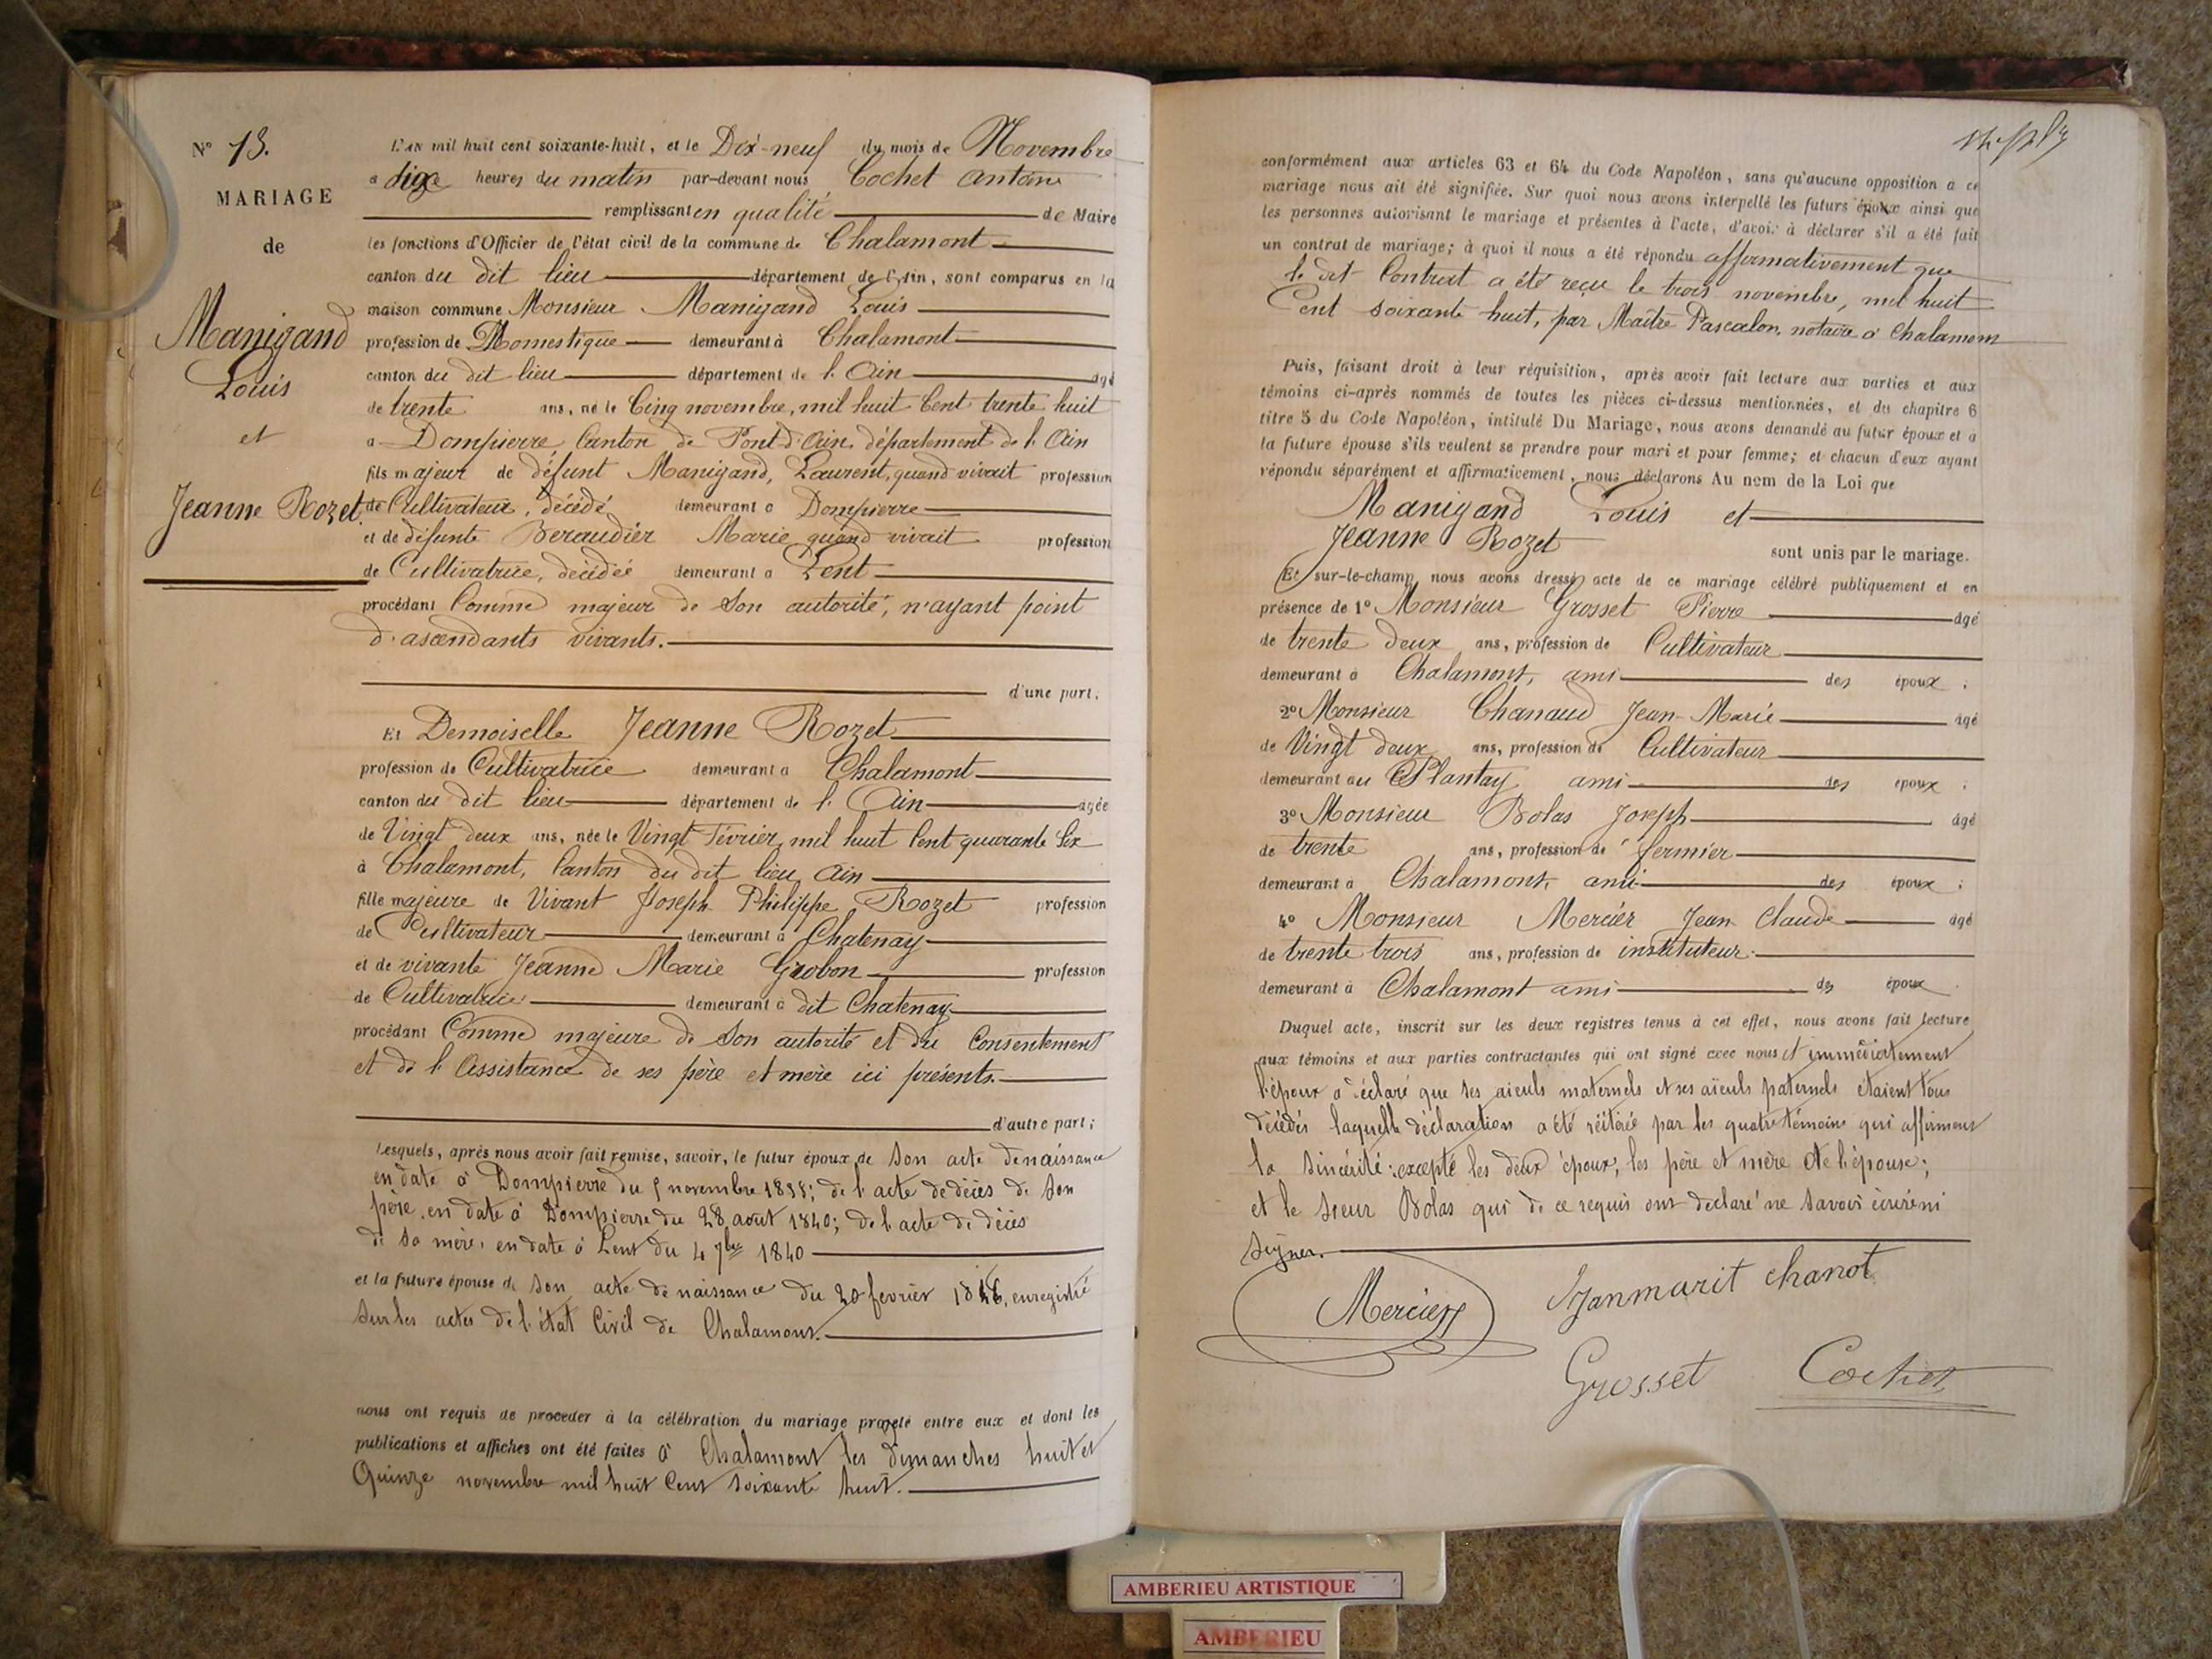 N° 13.
MARIAGE
de
Manigand
Louis
et
Jeanne Rozet.
L'AN mil huit cent soixante-huit, et le Dix-neuf du mois de Novembre
a dix heures du matin par-devant nous Cochet Antoine
remplissant en qualité de Maire
les fonctions d'Officier de l'état civil de la commune de Chalamont
canton du dit lieu département de l'Ain, sont comparus en la
maison commune Monsieur Manigand Louis
profession de Domestique demeurant à Chalamont
canton du dit lieu département de l'Ain agé
de trente ans, né le Cinq novembre, mil huit Cent trente huit
a Dompierre, Canton de Pont-d'Ain, département de l'Ain
fils majeur de défunt Manigand, Laurent, quand vivait profession
de Cultivateur, décédé demeurant a Dompierre
et de défunte Beraudier Marie quand vivait profession
de Cultivatrice, décédée demeurant a Lent
procédant Comme majeur de Son autorité, n'ayant point
d'ascendants vivants.
d'une part.
Et Demoiselle Jeanne Rozet
profession de Cultivatrice demeurant a Chalamont
canton du dit lieu département de l'Ain agée
de Vingt deux ans, née le Vingt Février, mil huit Cent quarante Six
à Chalamont, Canton du dit lieu, Ain
fille majeure de Vivant Joseph Philippe Rozet profession
de Cultivateur demeurant à Chatenay
et de vivante Jeanne Marie Grobon profession
de Cultivatrice demeurant à dit Chatenay
procédant Comme majeure de Son autorité et du Consentement
et de l'Assistance de ses père et mère ici présents.
d'autre part;
Lesquels, après nous avoir fait remise, savoir, le futur époux de Son acte de naissance
en date à Dompierre du 5 novembre 1838; de l'acte de décès de Son
père, en date à Dompierre du 28 août 1840; de l'acte de décès
de Sa mère, en date à Lent du 4 7bre 1840
et la future épouse de Son acte de naissance du 20 février 1846, enregistré
Sur les actes de l'état Civil de Chalamont.
nous ont requis de proceder à la célébration du mariage projeté entre eux et dont les
publications et affiches ont été faites à Chalamont les dimanches huit et
Quinze novembre mil huit Cent Soixante huit.
conformément aux articles 63 et 64 du Code Napoléon, sans qu'aucune opposition à ce
mariage nous ait été signifiée. Sur quoi nous avons interpellé les futurs époux ainsi que
les personnes autorisant le mariage et présentes à l'acte, d'avoir à déclarer s'il a été fait
un contrat de mariage; à quoi il nous a été répondu affirmativement que
le dit Contrat a été reçu le trois novembre, mil huit
Cent soixante huit, par Maître Pascalon, notaire à Chalamont
Puis, faisant droit à leur réquisition, après avoir fait lecture aux parties et aux
témoins ci-après nommés de toutes les pièces ci-dessus mentionnées, et du chapitre 6
titre 5 du Code Napoléon, intitulé Du Mariage, nous avons demandé au futur époux et à
la future épouse s'ils veulent se prendre pour mari et pour femme; et chacun d'eux ayant
répondu séparément et affirmativement, nous déclarons Au nom de la Loi que
Manigand Louis et
Jeanne Rozet sont unis par le mariage.
Et sur-le-champ nous avons dressé acte de ce mariage célébré publiquement et en
présence de 1° Monsieur Grosset Pierre agé
de trente deux ans, profession de Cultivateur
demeurant à Chalamont, ami des époux;
2° Monsieur Chanaud Jean-Marie agé
de Vingt deux ans, profession de Cultivateur
demeurant au Plantay ami des epoux;
3° Monsieur Bolas Joseph agé
de trente ans, profession de fermier
demeurant à Chalamont, ami des époux;
4° Monsieur Mercier Jean Claude agé
de trente trois ans, profession de instituteur
demeurant à Chalamont ami des époux
Duquel acte, inscrit sur les deux registres tenus à cet effet, nous avons fait lecture
aux témoins et aux parties contractantes qui ont signé avec nous et immédiatement
l'époux a déclaré que ses aieuls maternels et ses aïeuls paternels étaient tous
décédés laquelle déclaration a été réitérée par les quatre témoins qui affirment
la Sincérité: excepté les deux époux, les père et mère de l'épouse;
et le Sieur Bolas qui de ce requis ont declaré ne Savoir écrire ni
Signer.
Mercier
Janmarit chanot
Grosset
Cochet
AMBERIEU ARTISTIQUE
AMBERIEU